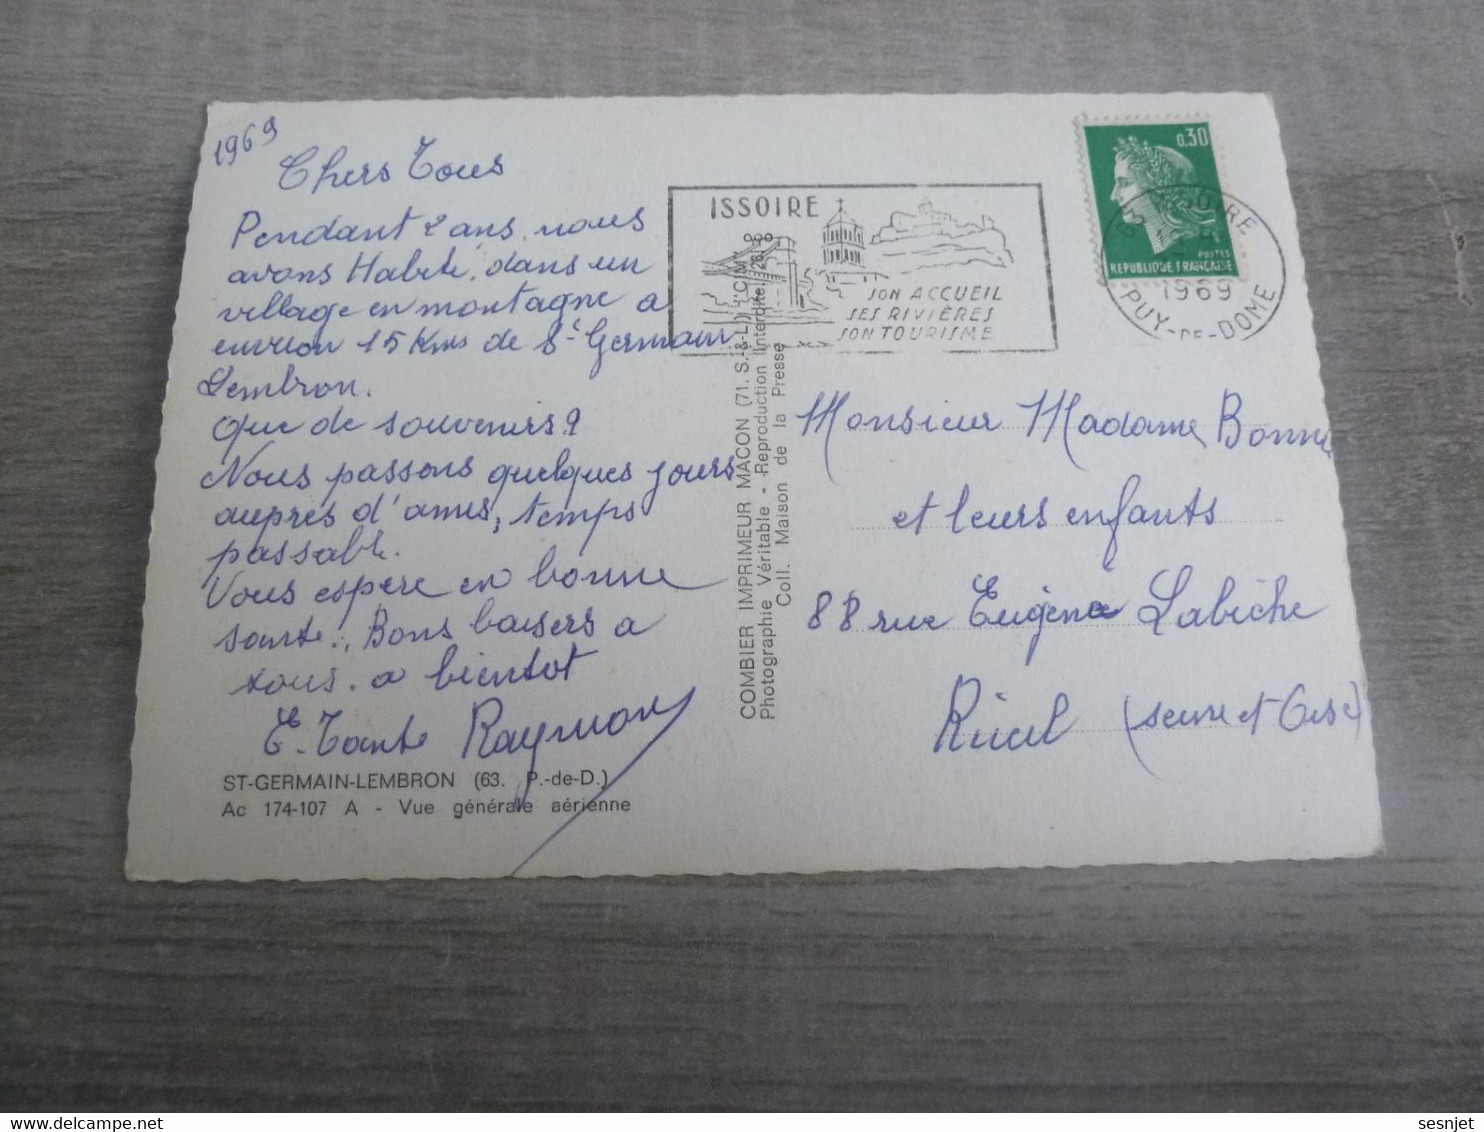 1969
Chers Tous
Pendant 2 ans nous
avons Habité dans un
village en montagne a
environ 15 Kms de St Germain
Lembron.
Que de souvenirs ?
Nous passons quelques jours
auprès d'amis, temps
passable.
Vous espère en bonne
sante., Bons baisers a
tous. a bientot
E. Tante Raymon
ST-GERMAIN-LEMBRON (63. P.-de-D.)
Ac 174-107 A - Vue générale aérienne
COMBIER IMPRIMEUR MACON (71. S.-&-L.) "CIM"
Photographie Véritable - Reproduction Interdite
Coll. Maison de la Presse
ISSOIRE
SON ACCUEIL
SES RIVIÈRES
SON TOURISME
0.30
POSTES
REPUBLIQUE FRANCAISE
63 ISSOIRE
1969
PUY-DE-DOME
Monsieur Madame Bonne
et leurs enfants
88 rue Eugène Labiche
Rueil (seine et Oise)
sesnjet
delcampe.net